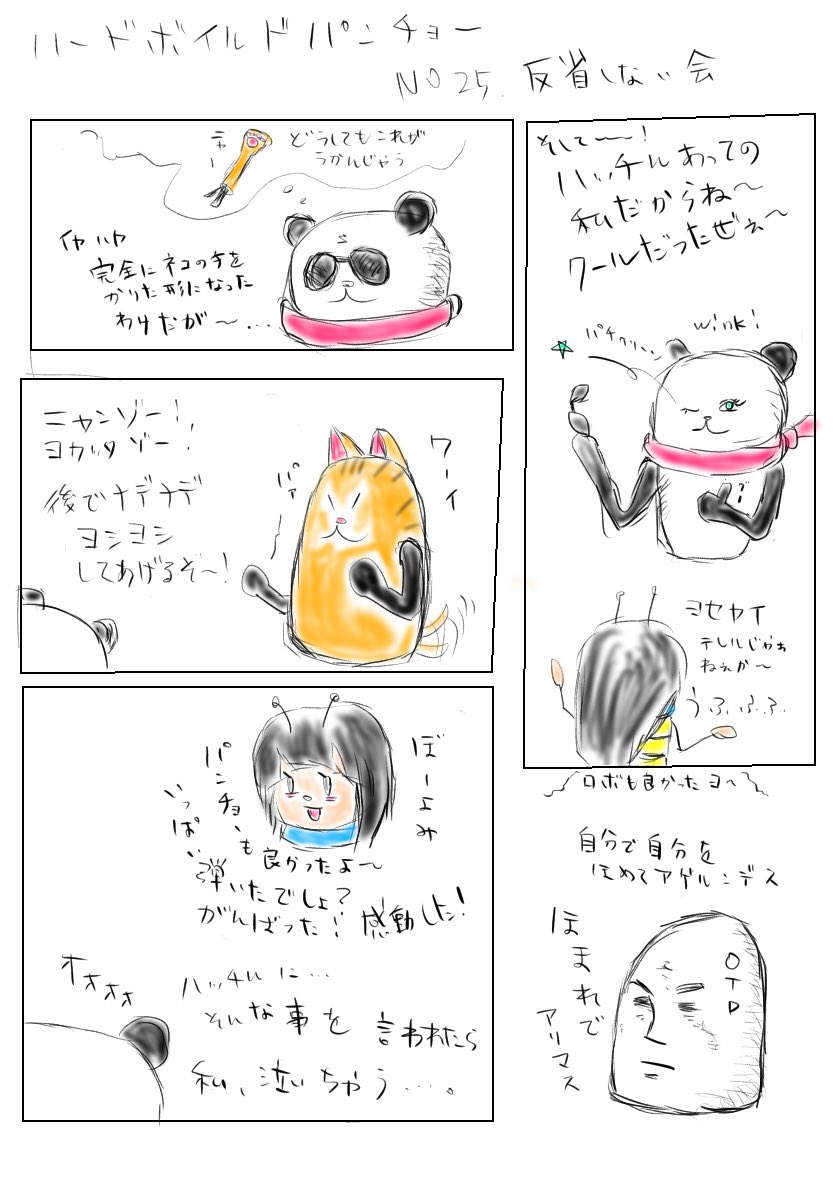 ハードボイルドパンチョー
NO 25. 反省しない会
どうしてもこれが
うかんじゃう
ニャー
イヤハヤ
完全にネコの手を
かりた形になった
わけだが〜...
ニャンゾー!,
ヨカッタゾー!
後でナデナデ
ヨシヨシ
してあげるぞ〜!
ワーイ
パァ〜
ぼーよみ
パンチョも
良かったよ〜
いっぱい
弾いたでしょ?
がんばった! 感動した!
オォォォ
ハッチルに…
そんな事を言われたら
私、泣いちゃう…。
そして〜〜!
ハッチルあっての
私だからね〜
クールだったぜぇ〜
パチクリーン
wink!
ヨセヤイ
テレルじゃぁ
ねぇか〜
うふふふ
ロボも良かったヨ〜
自分で自分を
ほめてアゲルンデス
ほまれで
アリマス